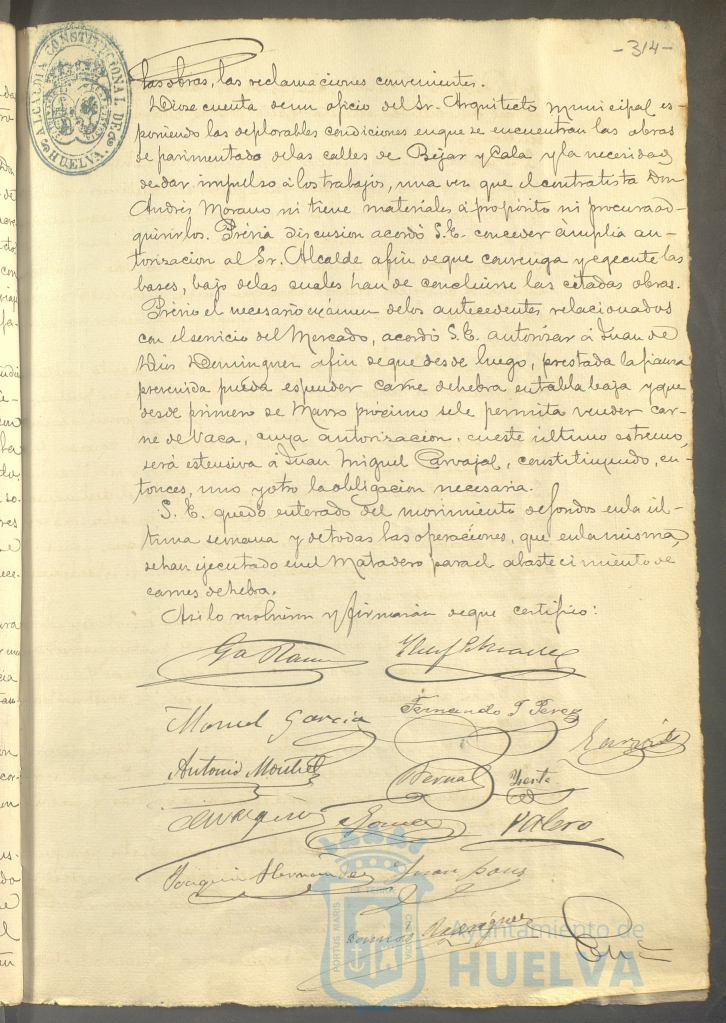 -314-
ALCALDIA CONSTITUCIONAL DE HUELVA.
las obras, las reclamaciones convenientes.
Diose cuenta de un oficio del Sr. Arquitecto municipal es-
poniendo las deplorables condiciones en que se encuentran las obras
de pavimentado de las calles de Béjar y Cala y la necesidad
de dar impulso á los trabajos, una vez que el contratista Don
Andrés Morano ni tiene materiales á propósito ni procura ad-
quirirlos. Prévia discusion acordó S.E. conceder ámplia au-
torizacion al Sr. Alcalde afin de que convenga y egecute las
bases, bajo de las cuales han de concluirse las citadas obras.
Prévio el necesario exámen de los antecedentes relacionados
con el servicio del Mercado, acordó S.E. autorizar á Juan de
Dios Dominguez afin de que desde luego, prestada la fianza
prevenida pueda espender carne de hebra en tabla baja y que
desde primero de Marzo próximo se le permita vender car-
ne de Vaca, cuya autorizacion, en este último estremo,
será estensiva á Juan Miguel Carvajal, constituyendo, en-
tonces, uno y otro la obligacion necesaria.
S. E. quedó enterado del movimiento de fondos en la úl-
tima semana y de todas las operaciones, que en la misma,
se han ejecutado en el Matadero para el abastecimiento de
carnes de hebra.
Asi lo resolvieron y firmarán de que certifico:
Manuel Garcia
Fernando T Perez
Antonio Montiel
Bernal
Valero
Joaquin Hernandez
Juan
Rodriguez
PORTUS MARIS
Ayuntamiento de
HUELVA